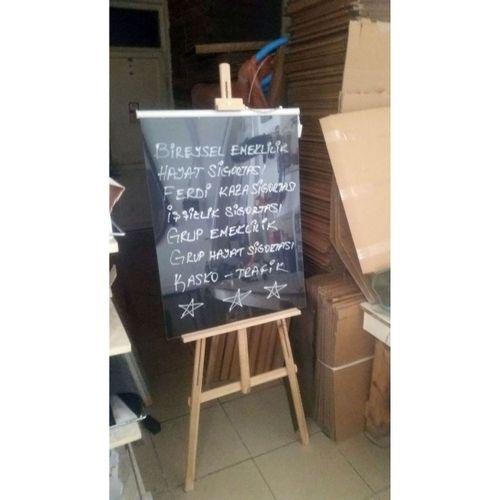 BİREYSEL EMEKLİLİK
HAYAT SİGORTASI
FERDİ KAZA SİGORTASI
İŞSİZLİK SİGORTASI
GRUP EMEKLİLİK
GRUP HAYAT SİGORTASI
KASKO - TRAFİK